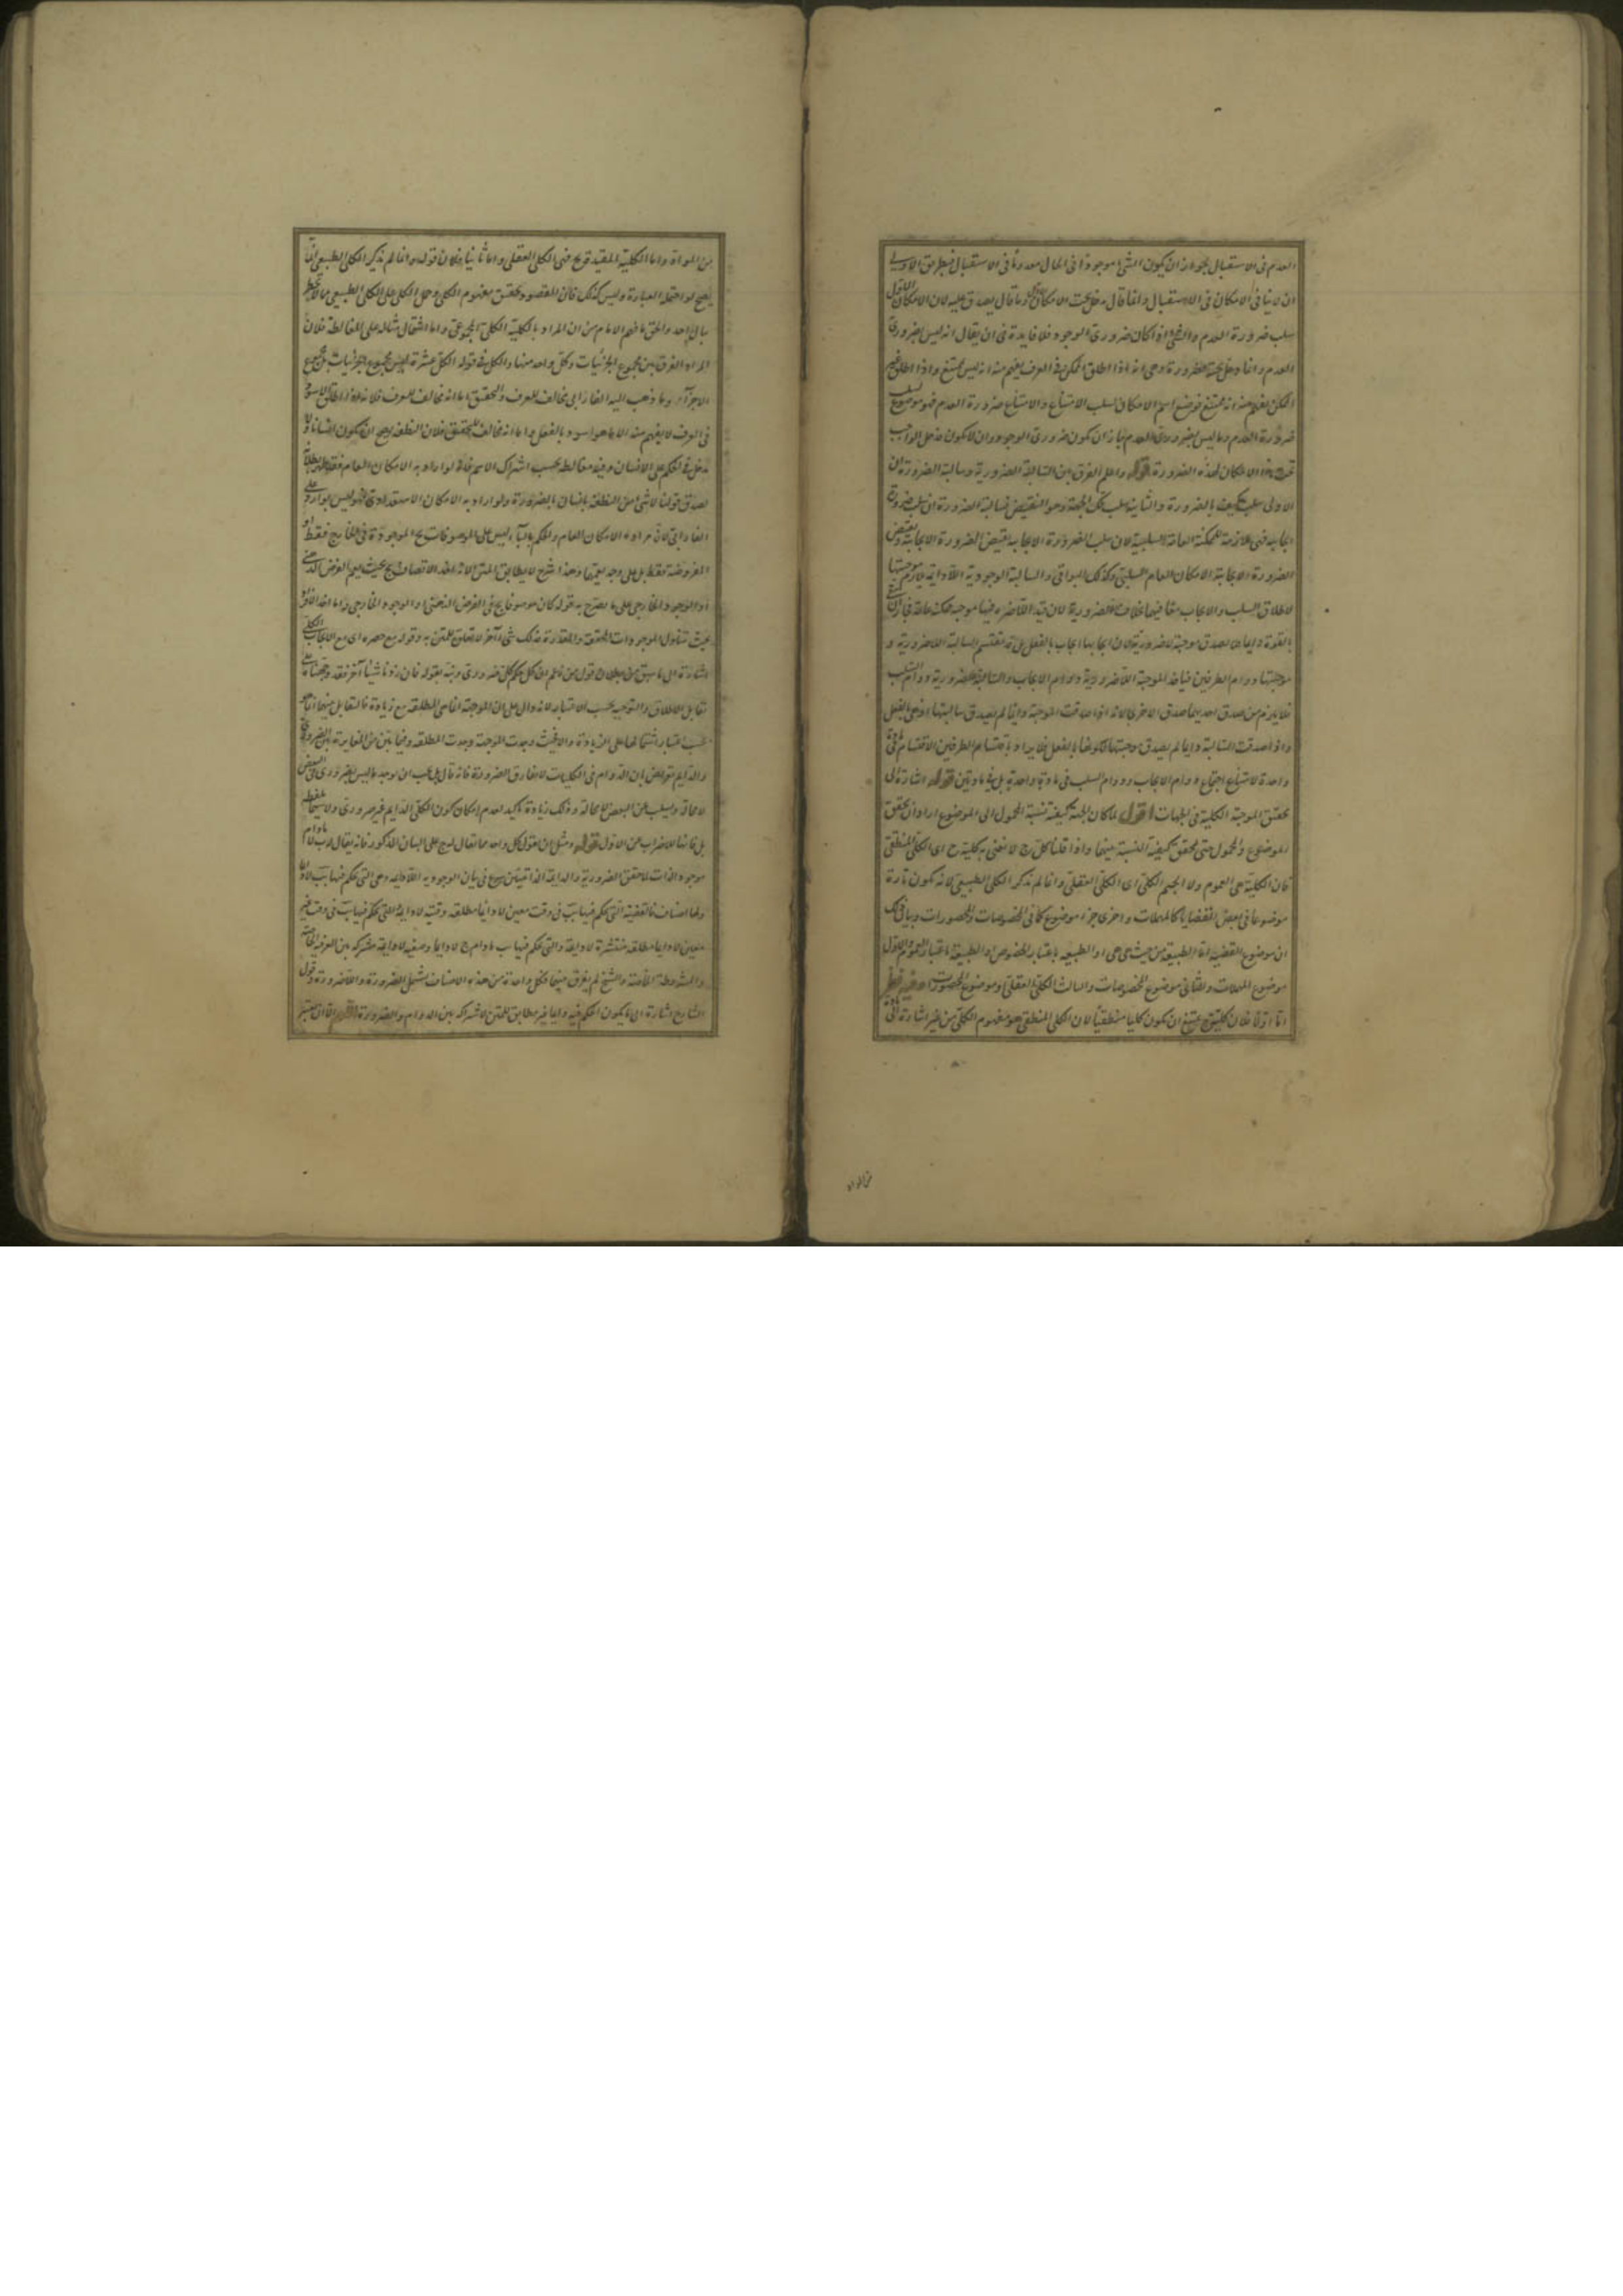 العدم فى الاستقبال بجواز ان يكون الشئ موجودا فى الحال معدوما فى الاستقبال فبطريق الاولى
ان لا ينافى الامكان فى الاستقبال وانما قال يدخل تحت الامكان وما قال يصدق عليه لان الامكان الاول
سلب ضرورة العدم والشئ اذا كان ضرورى الوجود فلا فايدة فى ان يقال انه ليس بضرورى
العدم وانما وهى انه اذا اطلق الممكن فى العرف يفهم منه انه ليس بممتنع واذا اطلق غير
الممكن يفهم منه انه ممتنع فوضع اسم الامكان لسلب الامتناع والامتناع ضرورة العدم فهو موضوع لسلب
ضرورة العدم وما ليس بضرورى العدم جاز ان يكون ضرورى الوجود وان لا يكون فدخل الواجب
تحت هذا الامكان لهذه الضرورة قوله واعلم الفرق بين السالبة الضرورية وسالبة الضرورة ان
الاولى سلب كيف بالضرورة والثانية سلب تلك الجهة وهو النقيض فسالبة الضرورة ان سلب ضرورة
ايجابية فهى ملازمة للممكنة العامة السلبية لان سلب الضرورة الايجابية نقيض الضرورة الايجابية ونقيض
الضرورة الايجابية الامكان العام السلبى وكذلك البواقى والسالبة الوجودية اللادايمة يلزم موجبتها
لاطلاق السلب والايجاب معا فيهما بخلاف اللاضرورية لان قيد اللاضرورة فيها موجبة ممكنة عامة فجاز ان
بالقوة دايما لا يصدق موجبة لاضرورية لان ايجابها ايجاب بالفعل بل قد تقتسم السالبة اللاضرورية و
موجبتها دوام الطرفين فياخذ الموجبة اللاضرورية دوام الايجاب والسالبة اللاضرورية دوام السلب
فلا يلزم من صدق احديهما صدق الاخرى لانه اذا صدقت الموجبة دايما لم يصدق سالبتها اذ هى بالفعل
واذا صدقت السالبة دايما لم يصدق موجبتها لكونها بالفعل ولا يراد باقتسام الطرفين الاقتسام فى مادة
واحدة لامتناع اجتماع دوام الايجاب ودوام السلب فى مادة واحدة بل فى مادتين قوله اشارة الى
تحقق الموجبة الكلية فى الجهات اقول لما كان الجهة كيفية نسبة المحمول الى الموضوع اراد ان يحقق
الموضوع والمحمول حتى يحقق كيفية النسبة بينهما واذا قلنا كل ج لا نعنى به كلية ج اى الكلى المنطقى
فان الكلية هى العموم ولا الجيم الكلى اى الكلى العقلى وانما لم يذكر الكلى الطبيعى لانه يكون تارة
موضوعا فى بعض القضايا كالمهملات واخرى جزء موضوع كما فى المخصوصات والمحصورات وبيان ذلك
ان موضوع القضية اما الطبيعة من حيث هى هى او الطبيعة باعتبار الخصوص او الطبيعة باعتبار العموم والاول
موضوع المهملات والثانى موضوع المخصوصات والثالث الكلى العقلى وموضوع المحصورات وفيه نظر
اما اولا فلان كلية ج يمتنع ان يكون كليا منطقيا لان الكلى المنطقى هو مفهوم الكلى من غير اشارة الى مادة
من المواد
من المواد واما الكلية المقيدة بج فهى الكلى العقلى واما ثانيا فلان قوله وانما لم يذكر الكلى الطبيعى انما
يصح لو احتمله العبارة وليس كذلك فان المقصود تحقق مفهوم الكلى وحمل الكلى على الكلى الطبيعى مما لا يخطر
ببال احد والحق ما فهم الامام من ان المراد بالكلية الكلى المجموعى واما اشتمال مثاله على المغالطة فلان
المراد الفرق بين مجموع الجزئيات وكل واحد منها والكل فى قوله الكل عشرة ليس مجموع الجزئيات بل مجموع
الاجزاء وما ذهب اليه الفارابى مخالف للعرف والتحقيق اما انه مخالف للعرف فلانه اذا اطلق الاسود
فى العرف لا يفهم منه الا ما هو اسود بالفعل واما انه مخالف للتحقيق فلان النطفة يصح ان يكون انسانا ولا
يدخل فى الحكم على الانسان وفيه مغالطة بحسب اشتراك الاسم فانه لو اراد به الامكان العام فقد ظهر بطلانه
لصدق قولنا لا شئ من النطفة بانسان بالضرورة ولو اراد به الامكان الاستعدادى فهو ليس بوارد على
الفارابى لان مراده الامكان العام والحكم بالباء ليس على الموصوفات بج الموجودة فى الخارج فقط او
المفروضة فقط بل على وجه يعمها وهذا شرح لا يطابق المتن لانه اخذ الاتصاف بج بحيث يعم الفرض الذهنى
او الوجود الخارجى على ما يصرح به قوله كان موصوفا بج فى الفرض الذهنى او الوجود الخارجى واما اخذ الافراد
بحيث يتناول الموجودات المحققة والمقدرة فذلك شئ آخر لا تعلق للمتن به وقوله مع حصره اى مع الايجاب الكلى
اشارة الى ما سبق من بطلان قول من زعم ان كل حكم كلى ضرورى ونبه بقوله فان زدنا شيئا آخر فقد وجهناه على
تقابل الاطلاق والتوجيه بحسب الاعتبار لانه دال على ان الموجهة انما هى المطلقة مع زيادة فالتقابل بينهما انما هو
بحسب اعتبار اشتمالها على الزيادة والا فحيث وجدت الموجهة وجدت المطلقة وفيما بين من المغايرة بين الضرورى
والدايم تعريض بان الدوام فى الكليات لا يفارق الضرورة فانه قال بل يجب ان يوجد ما ليس بضرورى فى البعض
لا محالة ويسلب عن البعض لا محالة وذلك زيادة تاكيد لعدم امكان كون الكلى الدايم غير ضرورى ولا سيما بلفظة
بل فانها للاضراب عن الاول قوله ومثل ان نقول كل واحد مما يقال له ج على البيان المذكور فانه يقال له ب لا ما دام
موجود الذات لما حقق الضرورية والدايمة الذاتيتين شرع فى بيان الوجودية اللادايمة وهى التى يحكم فيها بب لا دايما
ولها اصناف فالقضية التى يحكم فيها بب فى وقت معين لا دايما مطلقة وقتية لادايمة والتى يحكم فيها بب فى وقت غير
معين لا دايما مطلقة منتشرة لادايمة والتى يحكم فيها بب ما دام ج لا دايما وصفية لادايمة مشتركة بين العرفية الخاصة
والمشروطة الخاصة والشيخ لم يفرق بينهما فكل واحدة من هذه الاصناف تشتمل الضرورة واللاضرورة وقول
الشارح اشارة الى ما يكون الحكم فيه دايما غير مطابق للمتن لاشتراكه بين الدوام والضرورة